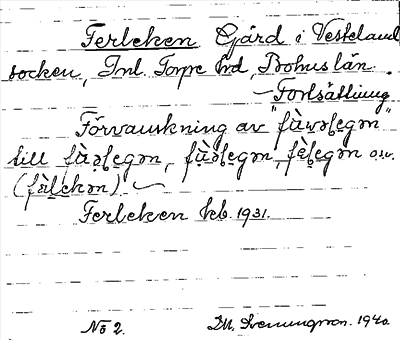 Ferleken Gård i Vesteland
socken, Inl. Torpe hrd, Bohus län.
— Fortsättning
Förvanskning av "fù̀wəḷegən"
till fàəḷegən, fùəḷegən, fèḷegən o.s.v.
(fàlekən) ~
Ferleken kb. 1931.
No 2. D.M. Svenungsson. 1940.